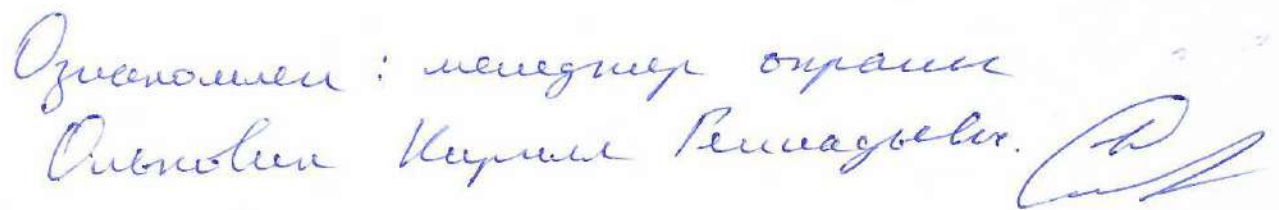 Ознакомлен: менеджер охраны
Ольховик Кирилл Геннадьевич.